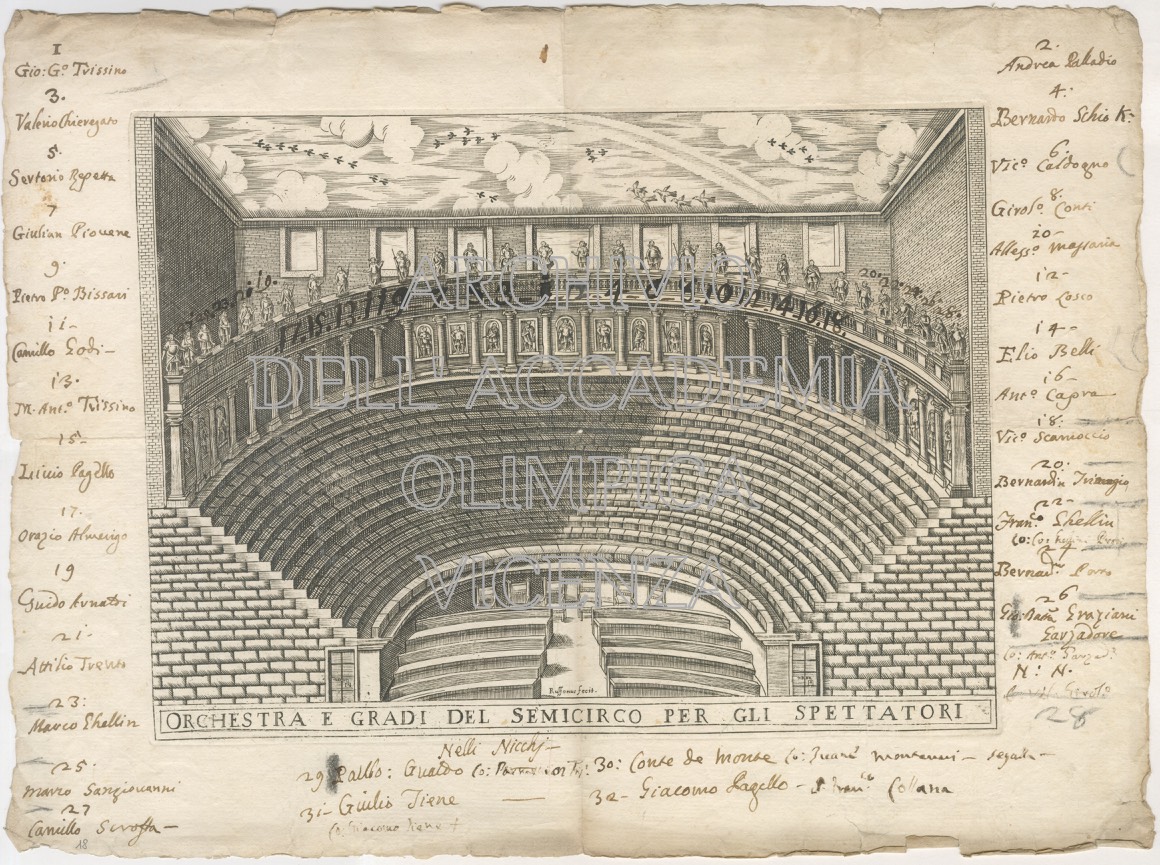 1
Gio: Gº Trissino
3.
Valerio Chieregato
5
Sertorio Repetta
7
Giulian Piovene
9.
Pietro Pº Bissari
11-
Camillo Godi-
13.
M. Ant.º Trissino
15-
Livio Pagello
17.
Orazio Almerigo
19
Guido
21.
Attilio Trento
23:
Marco Ghellin
25.
Marco Sangiovanni
27
Camillo Scroffa-
18
2.
Andrea Palladio
4.
Bernardo Schio K:
6.
Vicº Caldogno
8.
Girolº Conti
10
Alessº Massaria
12-
Pietro Losco
14-
Elio Belli
16-
Antº Capra
18.
Vicº Scamoccio
20.
Bernardin
22-
Franº Ghellin
24
Bernadⁿ Porro
26
Graziani
Garzadore
N: N.
28
17.15.13.11.9
10.12.14.16.18
ARCHIVIO
DELL'ACCADEMIA
OLIMPICA
VICENZA
Ruffonus fecit.
ORCHESTRA E GRADI DEL SEMICIRCO PER GLI SPETTATORI
Nelli Nicchj-
29 Gualdo
30: Conte de Monte
31- Giulio Tiene
32- Giacomo Pagello - Collana